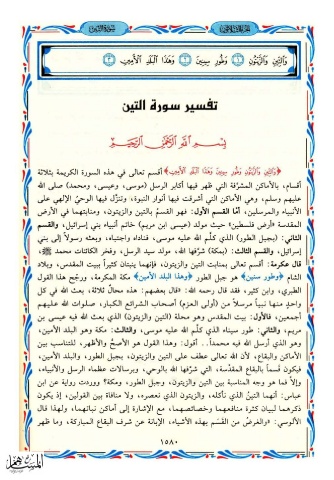 سورة التين
وَالتِّينِ وَالزَّيْتُونِ ١ وَطُورِ سِينِينَ ٢ وَهَٰذَا الْبَلَدِ الْأَمِينِ ٣
تفسير سورة التين
بسم الله الرحمن الرحيم
﴿وَالتِّينِ وَالزَّيْتُونِ وَطُورِ سِينِينَ وَهَٰذَا الْبَلَدِ الْأَمِينِ﴾ أقسم تعالى في هذه السورة الكريمة بثلاثة
أقسام، بالأماكن المشرّفة التي ظهر فيها أكابر الرسل (موسى، وعيسى، ومحمد) صلى الله
عليهم وسلم، وهي الأماكن التي أشرقت فيها أنوار النبوة، وتنزّل فيها الوحيُ الإلهي على
الأنبياء والمرسلين، أمّا القسم الأول: فهو القسمُ بالتين والزيتون، ومنابتهما في الأرض
المقدسة «أرض فلسطين» حيث مولد (عيسى ابن مريم) خاتم أنبياء بني إسرائيل، والقسم
الثاني: (بجبل الطور) الذي كلّم الله عليه موسى، فناداه واجتباه، وبعثه رسولاً إلى بني
إسرائيل، والقسم الثالث: (بمكة) شرّفها الله، مولد سيد الرسل، وفخر الكائنات محمد ﷺ،
قال عكرمة: أقسم تعالى بمنابت التين والزيتون، فإنهما ينبتان كثيراً ببيت المقدس، وبلاد
الشام ﴿وطور سنين﴾ هو جبل الطور ﴿وهذا البلد الأمين﴾ مكة المكرمة، ورجّح هذا القول
(الطبري، وابن كثير، فقد قال رحمه الله: «قال بعضهم: هذه محالّ ثلاثة، بعث الله في كل
واحدٍ منها نبياً مرسلاً من (أولي العزم) أصحاب الشرائع الكبار، صلوات الله عليهم
أجمعين، فالأول: بيت المقدس وهو محلة (التين والزيتون) الذي بعث الله فيه عيسى بن
مريم، والثاني: طور سيناء الذي كلّم الله عليه موسى، والثالث: مكة وهو البلد الأمين،
وهو الذي أرسل الله فيه محمداً.. أقول: وهذا القول هو الأصحُّ والأظهر، للتناسب بين
الأماكن والبقاع، لأن الله تعالى عطف على التين والزيتون، بجبل الطور، والبلد الأمين،
فيكون قَسَماً بالبقاع المقدَّسة، التي شرّفها الله بالوحي، وبرسالات عظماء الرسل والأنبياء،
وإلاَّ فما هو وجه المناسبة بين التين والزيتون، وجبل الطور، ومكة؟ ووردت رواية عن ابن
عباس: أنهما التينُ الذي تأكله، والزيتون الذي نعصره، ولا منافاة بين القولين، إذ يكون
ذكرهما لبيان كثرة منافعهما وخصائصهما، مع الإشارة إلى أماكن نباتهما، ولهذا قال
الألوسي: «والغرضُ من القَسَم بهذه الأشياء، الإبانة عن شرف البقاع المباركة، وما ظهر
١٥٨٠